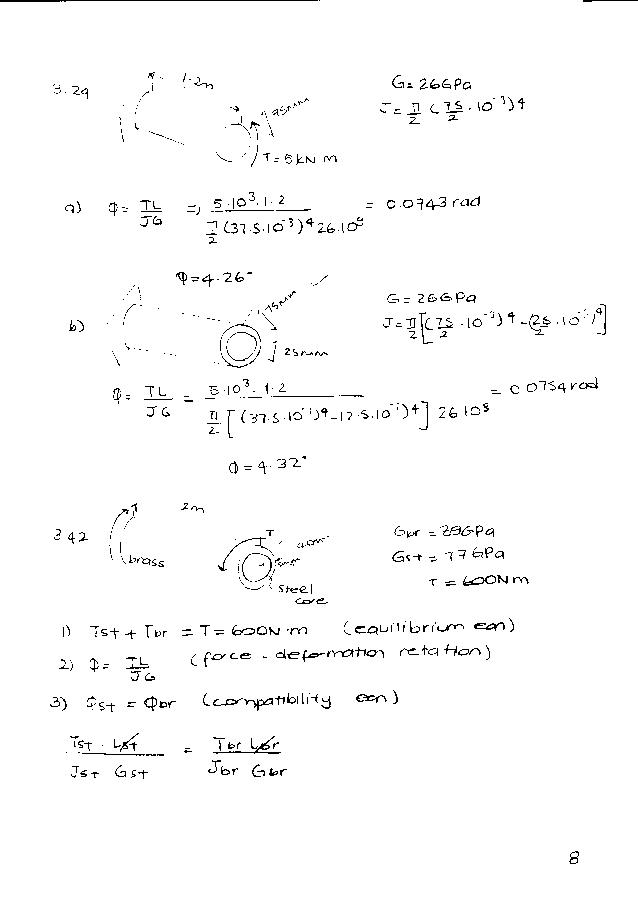 3.29
1.2m
G = 26GPa
J = π/2 (75/2 · 10^-3)^4
75mm
T = 5 kN m
a) Φ = TL/JG ⇒ 5·10^3·1·2 / π/2 (37.5·10^-3)^4 26·10^9 = 0.0743 rad
Φ = 4.26°
75mm
G = 26GPa
b)
J = π/2 [(75/2 · 10^-3)^4 - (25/2 · 10^-3)^4]
25mm
Φ = TL/JG = 5·10^3·1·2 / π/2 [(37.5·10^-3)^4 - 12.5·10^-3)^4] 26 10^9 = 0.0754 rad
Φ = 4.32°
3.42
T
2m
brass
T
Steel core
Gbr = 39GPa
Gst = 77GPa
T = 600Nm
1) Tst + Tbr = T = 600N·m (equilibrium eqn)
2) Φ = TL/JG (force - deformation relation)
3) Φst = Φbr (compatibility eqn)
Tst · Lst / Jst Gst = Tbr Lbr / Jbr Gbr
8